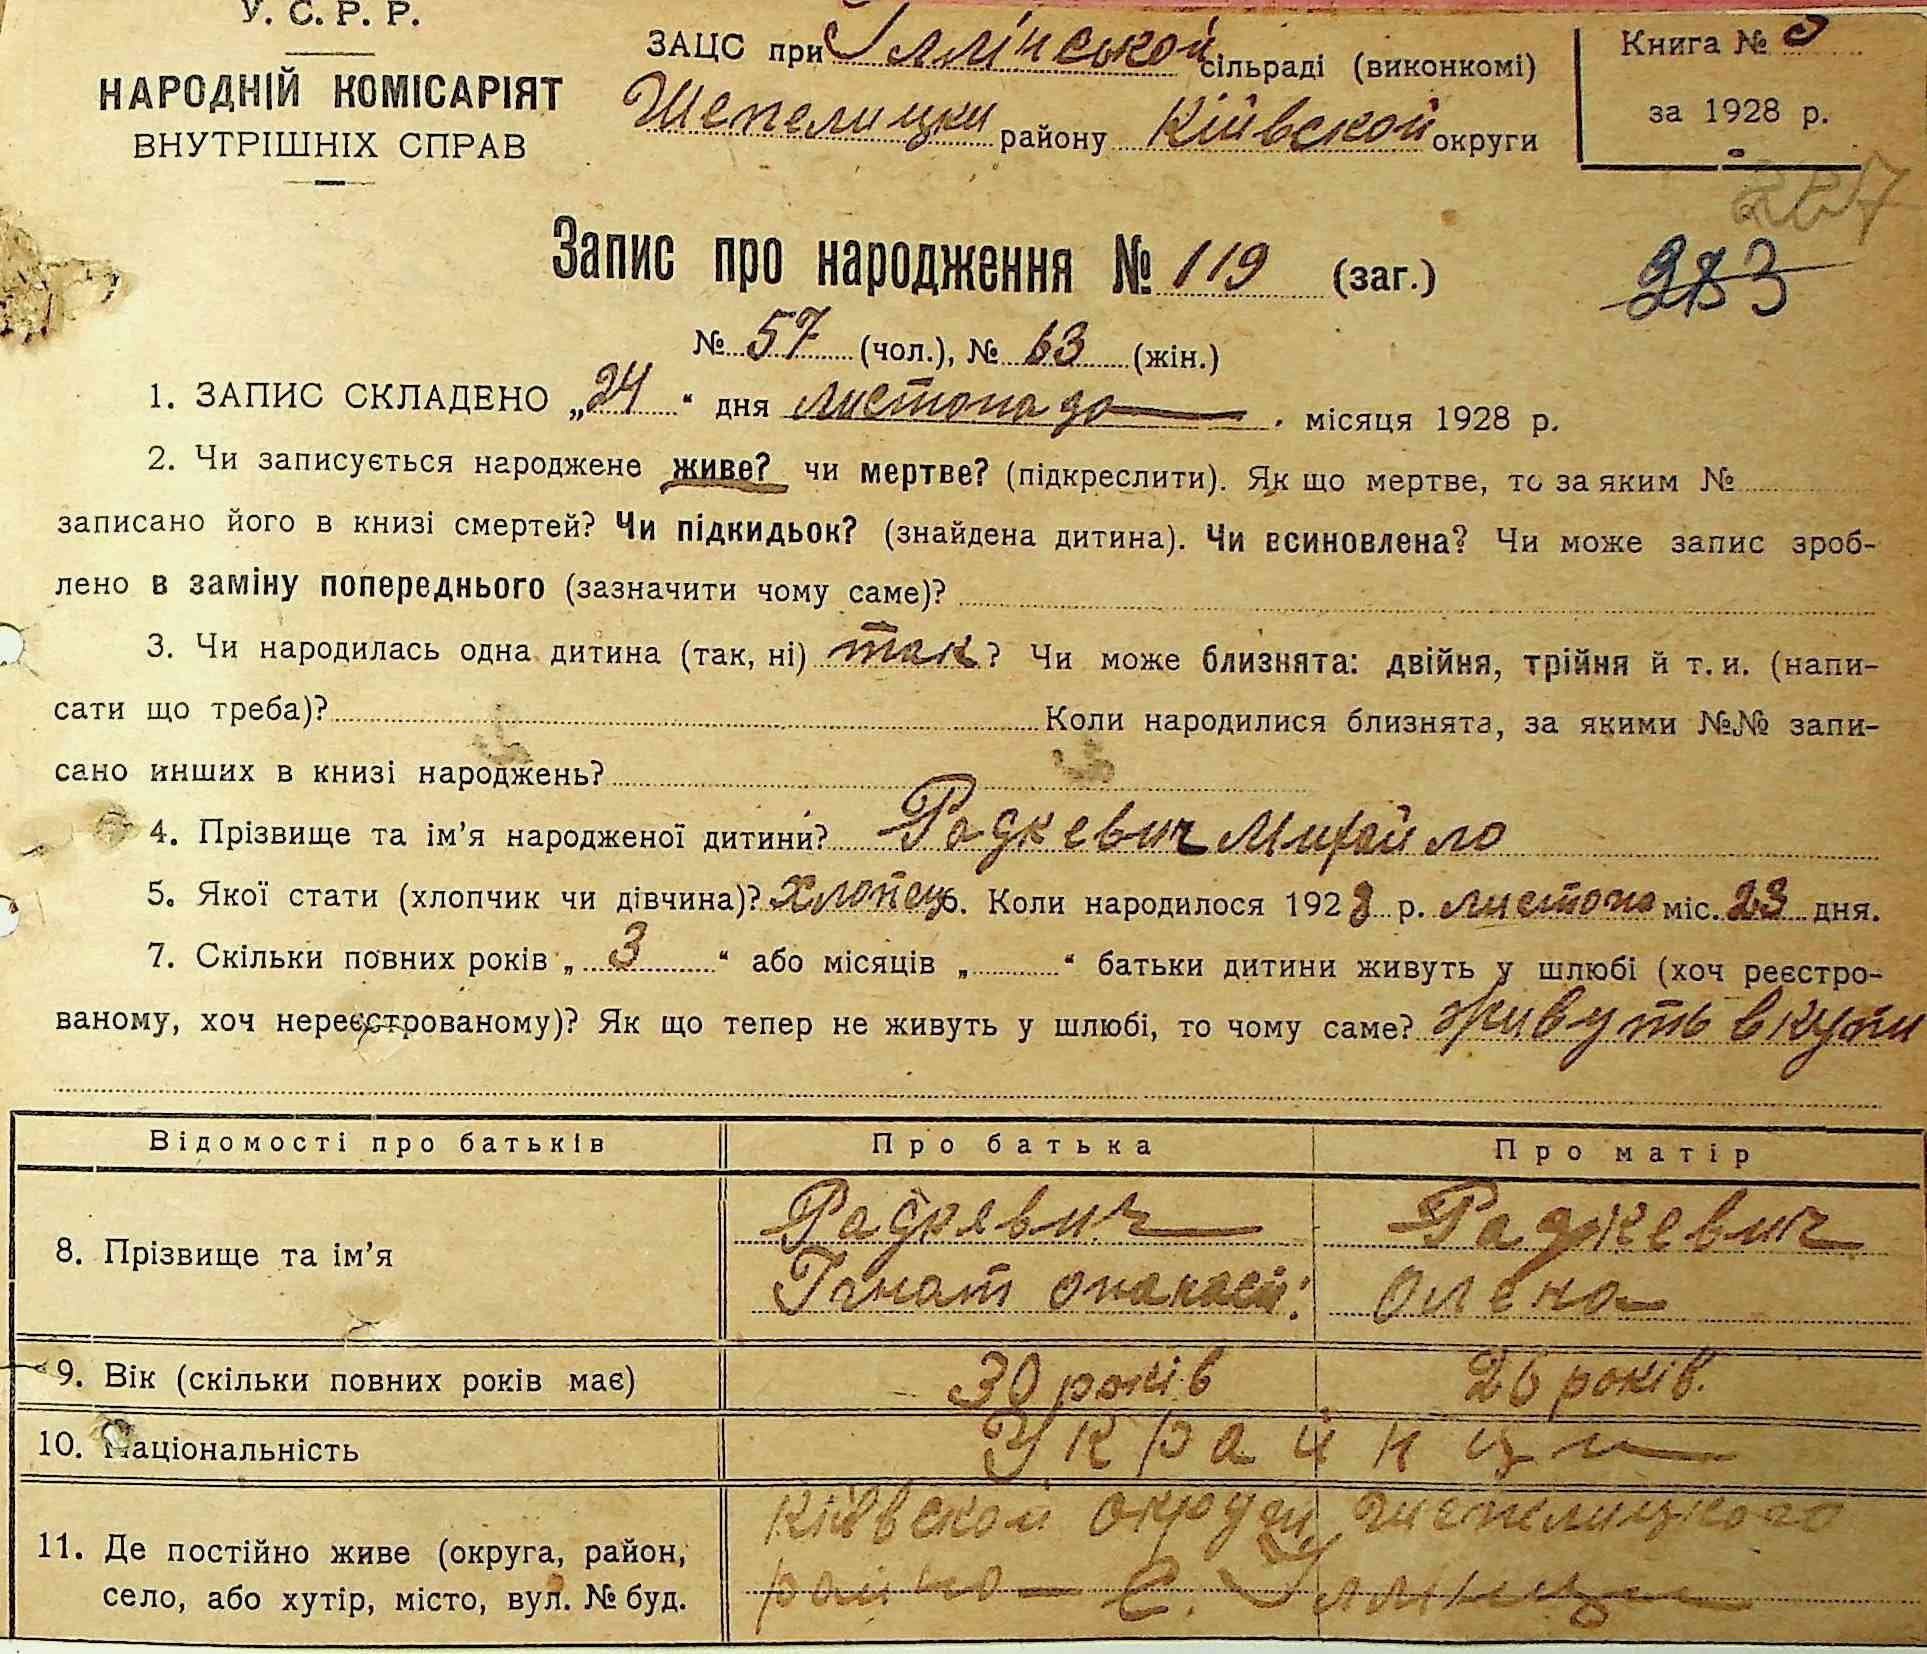 У. С. Р. Р.
НАРОДНІЙ КОМІСАРІЯТ
ВНУТРІШНІХ СПРАВ
ЗАЦС при Іллінськой сільраді (виконкомі)
Шепелицки району Київской округи
Книга №
за 1928 р.
Запис про народження № 119 (заг.)
283
№ 57 (чол.), № 63 (жін.)
1. ЗАПИС СКЛАДЕНО „24“ дня листопадо місяця 1928 р.
2. Чи записується народжене живе? чи мертве? (підкреслити). Як що мертве, то за яким №
записано його в книзі смертей? Чи підкидьок? (знайдена дитина). Чи всиновлена? Чи може запис зроб-
лено в заміну попереднього (зазначити чому саме)?
3. Чи народилась одна дитина (так, ні) так? Чи може близнята: двійня, трійня й т. и. (напи-
сати що треба)? Коли народилися близнята, за якими №№ запи-
сано инших в книзі народжень?
4. Прізвище та ім’я народженої дитини? Радкевич Михайло
5. Якої стати (хлопчик чи дівчина)? хлопець 6. Коли народилося 1928 р. листопа міс. 23 дня.
7. Скільки повних років „3“ або місяців „ “ батьки дитини живуть у шлюбі (хоч реєстро-
ваному, хоч нереєстрованому)? Як що тепер не живуть у шлюбі, то чому саме? живуть вкупи
Відомості про батьків Про батька Про матір
8. Прізвище та ім’я
Радкевич Радкевич
Ігнат Опанасів: Олена
9. Вік (скільки повних років має) 30 років 26 років.
10. Національність Українци
Київской округи Шепелицкого
11. Де постійно живе (округа, район,
село, або хутір, місто, вул. № буд.
райно С. Іллінци